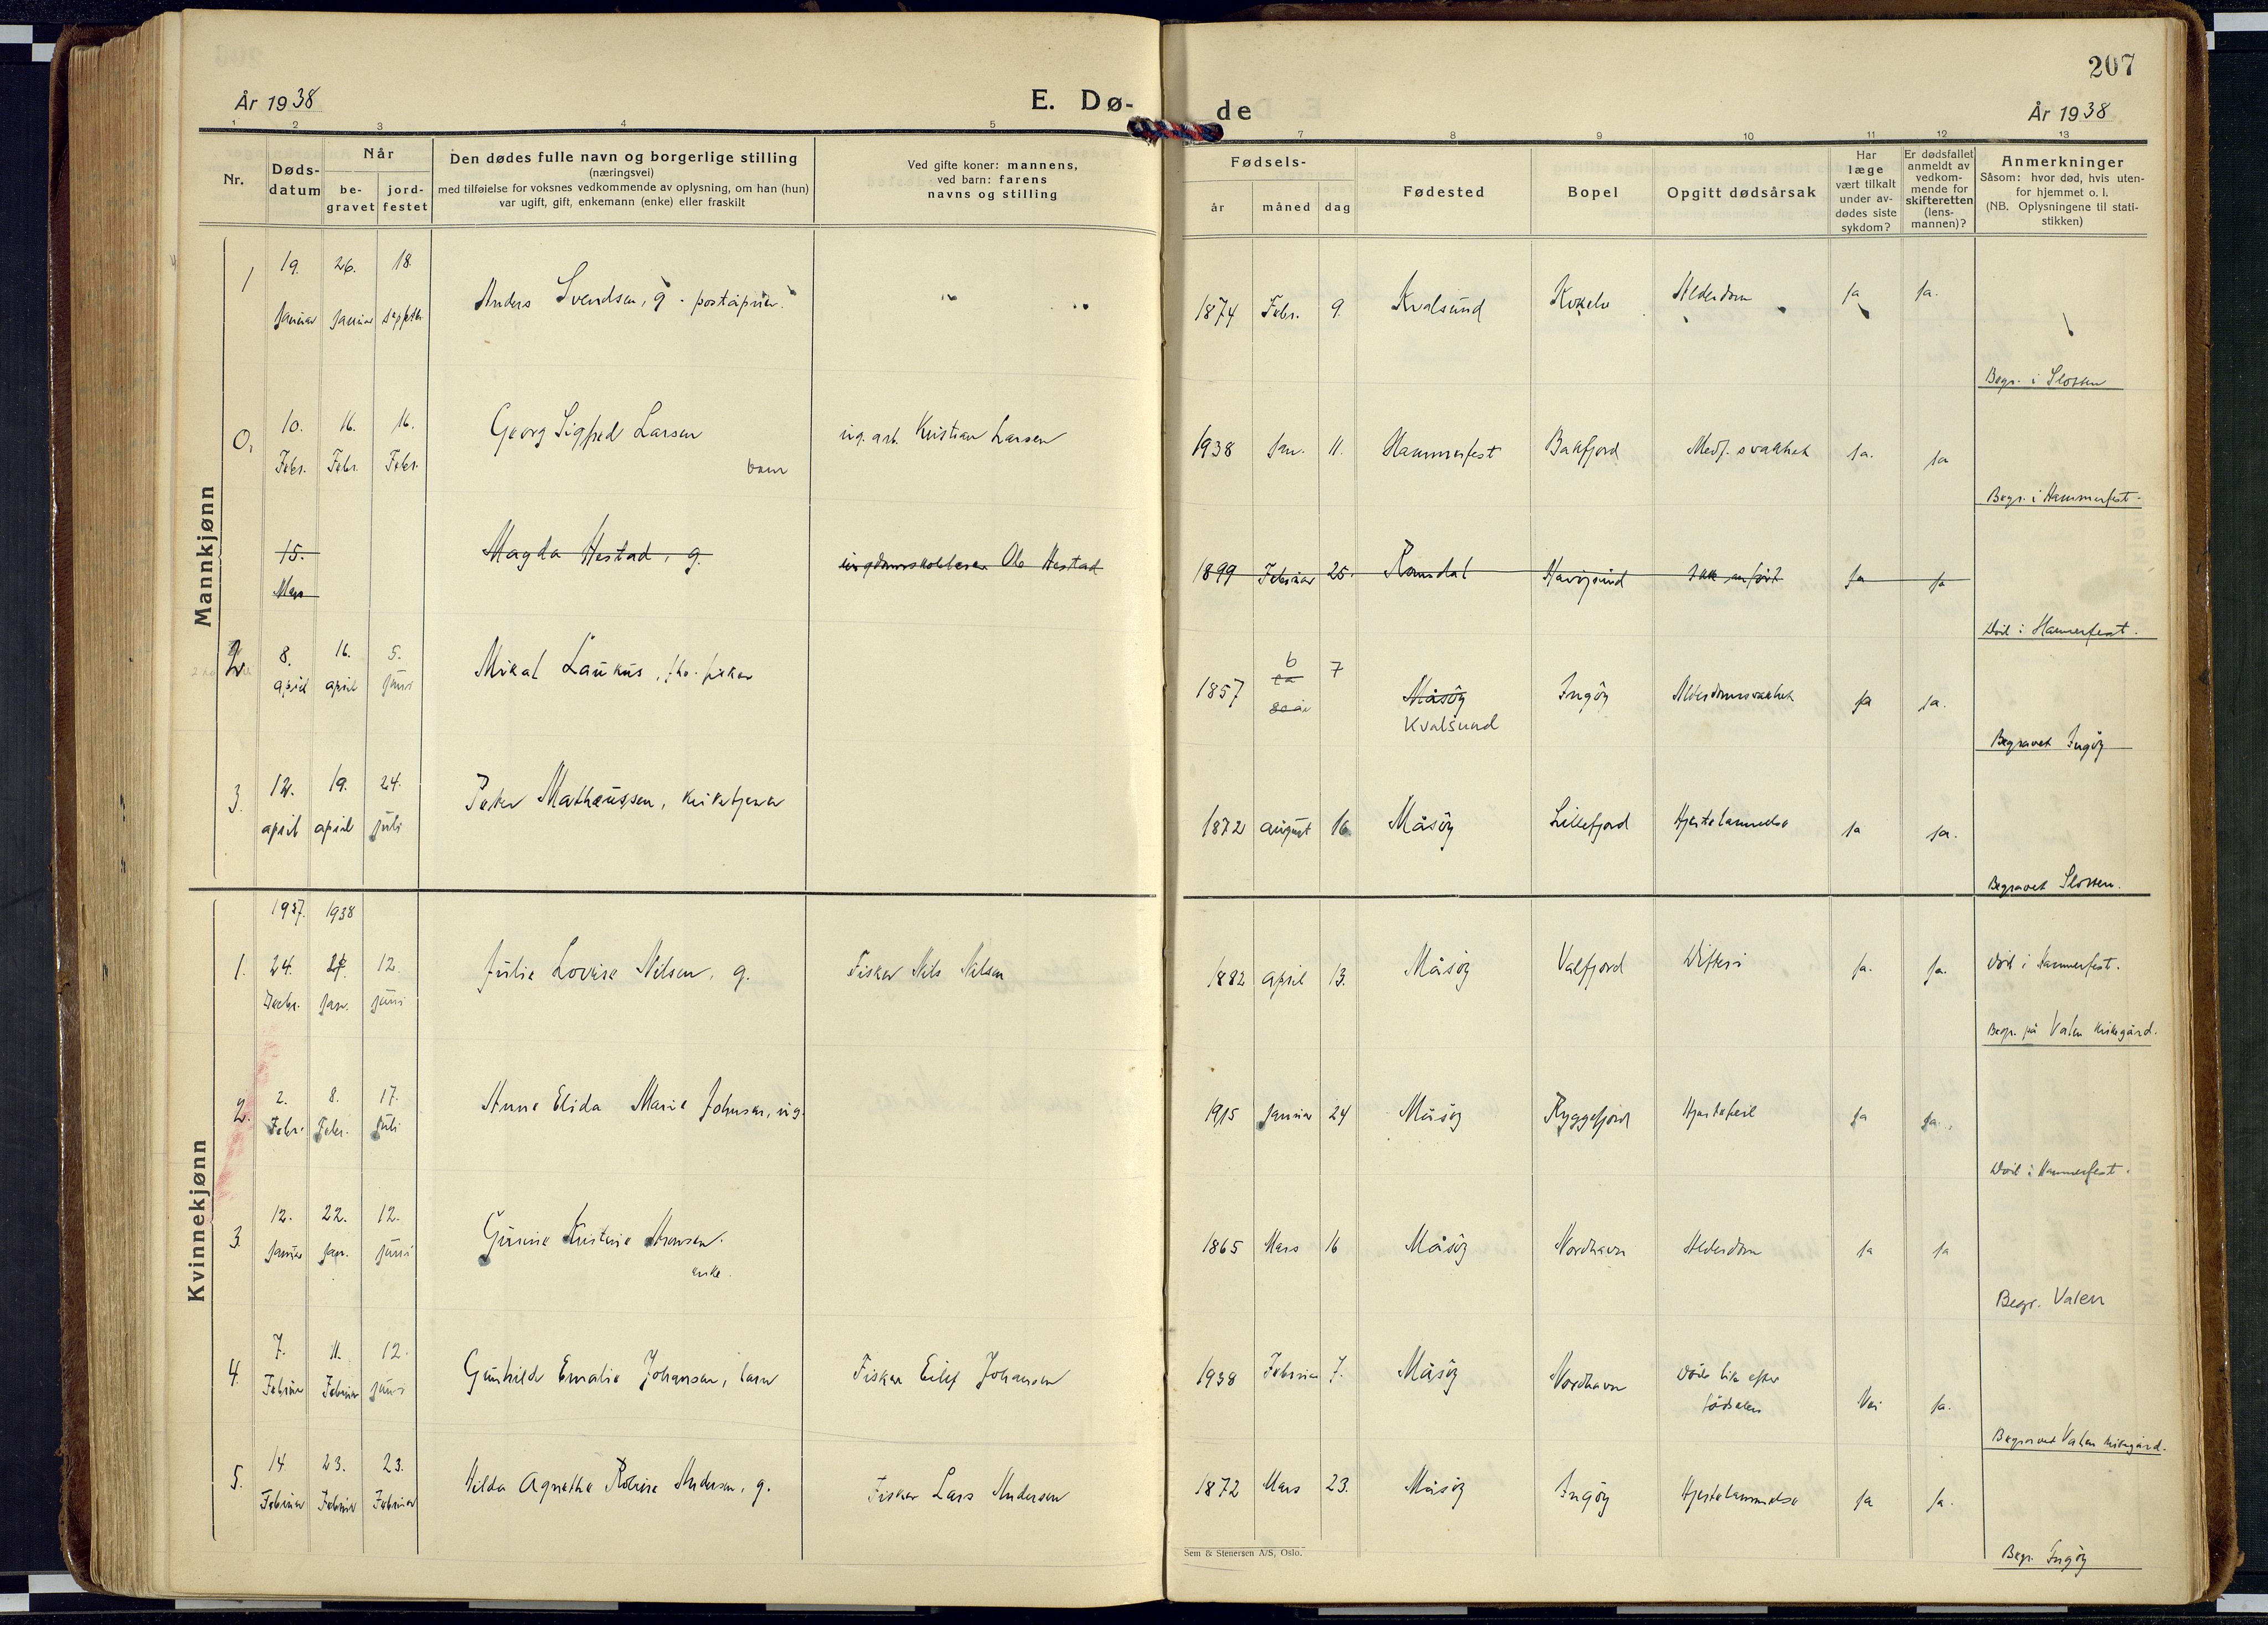 207
År 1938
E. Dø-
de
År 1938
1 2 3 4 5 7 8 9 10 11 12 13
Nr.
Døds-
datum
Når
be-
gravet
jord-
festet
Den dødes fulle navn og borgerlige stilling
(næringsvei)
med tilføielse for voksnes vedkommende av oplysning, om han (hun)
var ugift, gift, enkemann (enke) eller fraskilt
Ved gifte koner: mannens,
ved barn: farens
navns og stilling
Fødsels-
år måned dag
Fødested
Bopel
Opgitt dødsårsak
Har
læge
vært tilkalt
under av-
dødes siste
sykdom?
Er dødsfallet
anmeldt av
vedkom-
mende for
skifteretten
(lens-
mannen)?
Anmerkninger
Såsom: hvor død, hvis uten-
for hjemmet o. l.
(NB. Oplysningene til stati-
stikken)
Mannkjønn
1 19. Januar 26. Januar 18. septbr. Anders Svendsen, g. poståpner 1874 Febr. 9. Kvalsund Kokelv Alderdom ja ja.
Begr. i Slotten
10. Febr. 16. Febr. 16. Febr. Georg Sigfred Larsen
barn
ug. arb. Kristian Larsen 1938 Jan. 11. Hammerfest Bakfjord Medf. svakhet ja. ja
Begr. i Hammerfest.
15. Mars Magda Hestad, g. ungdomsskolelærer Ole Hestad 1899 Februar 25. Romsdal Havøysund Ikke anført ja ja
Død i Hammerfest.
2 8. april 16. april 5. juni Mikal Laukus, fisker 1857 6 7 ca 80 år Måsøy
Kvalsund
Ingøy Alderdomssvakhet ja ja.
Begravet Ingøy
3. 12. april 19. april 24. juli Peder Mathæussen, kirketjener 1872 august 16 Måsøy Lillefjord Hjertelammelse ja ja.
Begravet Slotten.
Kvinnekjønn
1937. 1938
1. 24. Decbr. 27. Jan. 12. juni Julie Lovise Nilsen, g. Fisker Nils Nilsen 1882 april 13. Måsøy Valfjord Difteri ja. ja. Död i Hammerfest.
Begr. på Valen kirkegård.
2. 2. Febr. 8. Febr. 17. juli Anna Elida Marie Johnsen, ug. 1915 Januar 24 Måsøy Ryggefjord Hjertefeil ja ja.
Död i Hammerfest.
3. 12. Januar 22. Jan. 12. juni Gurine Kristine
enke.
1865 Mars 16 Måsøy Nordhavn Alderdom ja ja
Begr. Valen
4. 7. Februar 11. Februar 12. juni Gunhilde Emalie Johansen, barn Fisker Eilif Johansen 1938 Februar 7. Måsøy Nordhavn Döde like efter
födselen
Nei ja.
Begravet Valen kirkegård.
5. 14 Februar 23. Februar 23. Februar Hilda Agnethe Rebine Andersen, g. Fisker Lars Andersen 1872 Mars 23. Måsøy Ingøy Hjertelammelse ja ja.
Begr. Ingøy
Sem & Stenersen A/S, Oslo.